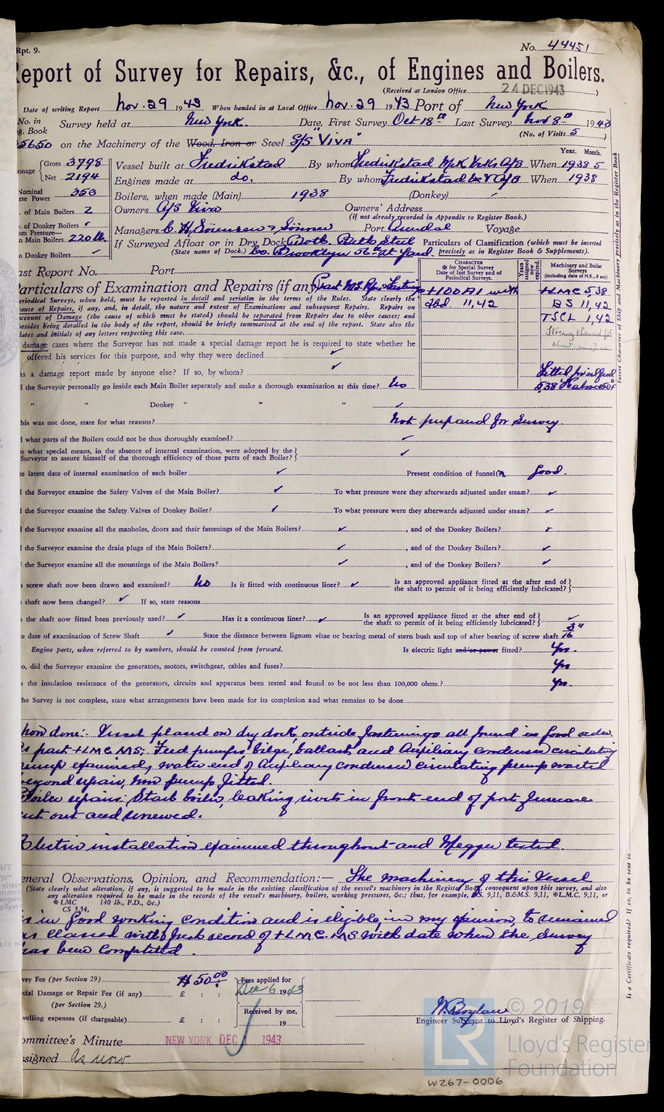 Rpt. 9.
No. 44451
Report of Survey for Repairs, &c., of Engines and Boilers.
(Received at London Office 24 DEC 1943
Date of writing Report Nov. 29 1943 When handed in at Local Office Nov. 29 1943 Port of New York
No. in Reg. Book Survey held at New York Date, First Survey Oct 18th Last Survey Nov 8th 1943
(No. of Visits 5
35650 on the Machinery of the Wood, Iron or Steel S/S "VIVA"
Gross 3798
Net 2194
Vessel built at Fredrikstad By whom Fredrikstad Mek Verks A/B When 1938 5
Year. Month.
Engines made at do. By whom Fredrikstad A/B When 1938
Nominal Horse Power 353
Boilers, when made (Main) 1938 (Donkey)
No. of Main Boilers 2
Owners A/S Viva Owners' Address
(if not already recorded in Appendix to Register Book.)
No. of Donkey Boilers
Managers C. H. Sörensen & Sönner Port Arendal Voyage
in Main Boilers 220 lb
If Surveyed Afloat or in Dry Dock Both. Beth Steel
(State name of Dock.) Co. Brooklyn 56th St Yard.
in Donkey Boilers
Particulars of Classification (which must be inserted precisely as in the Register Book & Supplements).
Last Report No. Port
Particulars of Examination and Repairs (if any) Part MS
Periodical Surveys, when held, must be reported in detail and seriatim in terms of the Rules. State clearly the
cause of Repairs, if any, and, in detail, the nature and extent of Examinations and subsequent Repairs. Repairs on
account of Damage (the cause of which must be stated) should be separated from Repairs due to other causes; and
besides being detailed in the body of the report, should be briefly summarised at the end of the report. State also the
dates and initials of any letters respecting this case.
CHARACTER
for Special Survey
Date of last Survey and of Periodical Surveys.
Machinery and Boiler Surveys
(including date of N.B., if any)
+100A1 with
fbd 11,42
+LMC 5.38
BS 11,42
TSCL 1,42
Insert Character of Ship and Machinery precisely as in the Register Book
In damage cases where the Surveyor has not made a special damage report he is required to state whether he
offered his services for this purpose, and why they were declined
Was a damage report made by anyone else? If so, by whom?
Did the Surveyor personally go inside each Main Boiler separately and make a thorough examination at this time? No
" " Donkey " " "
If this was not done, state for what reasons? Not prepared for Survey.
And what parts of the Boilers could not be thoroughly examined?
Also what special means, in the absence of internal examination, were adopted by the
Surveyor to assure himself of the thorough efficiency of those parts of each Boiler?
State latest date of internal examination of each boiler Present condition of funnel Good.
Did the Surveyor examine the Safety Valves of the Main Boiler? To what pressure were they afterwards adjusted under steam?
Did the Surveyor examine the Safety Valves of Donkey Boiler? To what pressure were they afterwards adjusted under steam?
Did the Surveyor examine all the manholes, doors and their fastenings of the Main Boilers? , and of the Donkey Boilers?
Did the Surveyor examine the drain plugs of the Main Boilers? , and of the Donkey Boilers?
Did the Surveyor examine all the mountings of the Main Boilers? , and of the Donkey Boilers?
Has screw shaft now been drawn and examined? No Is it fitted with continuous liner? Is an approved appliance fitted at the after end of the shaft to permit of it being efficiently lubricated?
Has shaft now been changed? If so, state reasons
Has the shaft now fitted been previously used? Has it a continuous liner? Is an approved appliance fitted at the after end of the shaft to permit of it being efficiently lubricated?
State date of examination of Screw Shaft State the distance between lignum vitae or bearing metal of stern bush and top of after bearing of screw shaft 3/16"
Engine parts, when referred to by numbers, should be counted from forward. Is electric light and/or power fitted? Yes.
If so, did the Surveyor examine the generators, motors, switchgear, cables and fuses? Yes
Has the insulation resistance of the generators, circuits and apparatus been tested and found to be not less than 100,000 ohms.? Yes.
If the Survey is not complete, state what arrangements have been made for its completion and what remains to be done
Now done:- Vessel placed on dry dock outside fastenings all found in good order.
As part +LMC.MS:- Feed pumps, bilge, ballast, and Auxiliary condenser circulating
pump examined, water end of Auxiliary condenser circulating pump wasted
beyond repair, new pump fitted.
Boiler repairs, Starb boiler, leaking rivets in front end of port furnace
cut out and renewed.
Electric installation examined throughout and Megger tested.
General Observations, Opinion, and Recommendation:- The machinery of this Vessel
(State clearly what alteration, if any, is suggested to be made in the existing classification of the vessel's machinery in the Register Book, consequent upon this survey, and also
any alteration required to be made in the records of the vessel's machinery, boilers, working pressures, &c.; thus, for example, B.S. 9,11, B.&M.S. 9,11, ✠LMC. 9,11, or
✠LMC 140 lb., F.D., &c.)
CS 3,34,
is in good working condition and is eligible, in my opinion, to remained
as classed with fresh record of +LMC.MS with date when the Survey
has been completed.
Survey Fee (per Section 29) $50.00
Special Damage or Repair Fee (if any) £ : :
(per Section 29.)
Travelling expenses (if chargeable) £ : :
Fees applied for
Dec 6 1943
Received by me,
19
W. Boylan
Engineer Surveyor to Lloyd's Register of Shipping.
Committee's Minute NEW YORK DEC 1943
Assigned As now
Is a Certificate required? If so, to be sent to
© 2019
LR
Lloyd's Register
Foundation
W267-0006